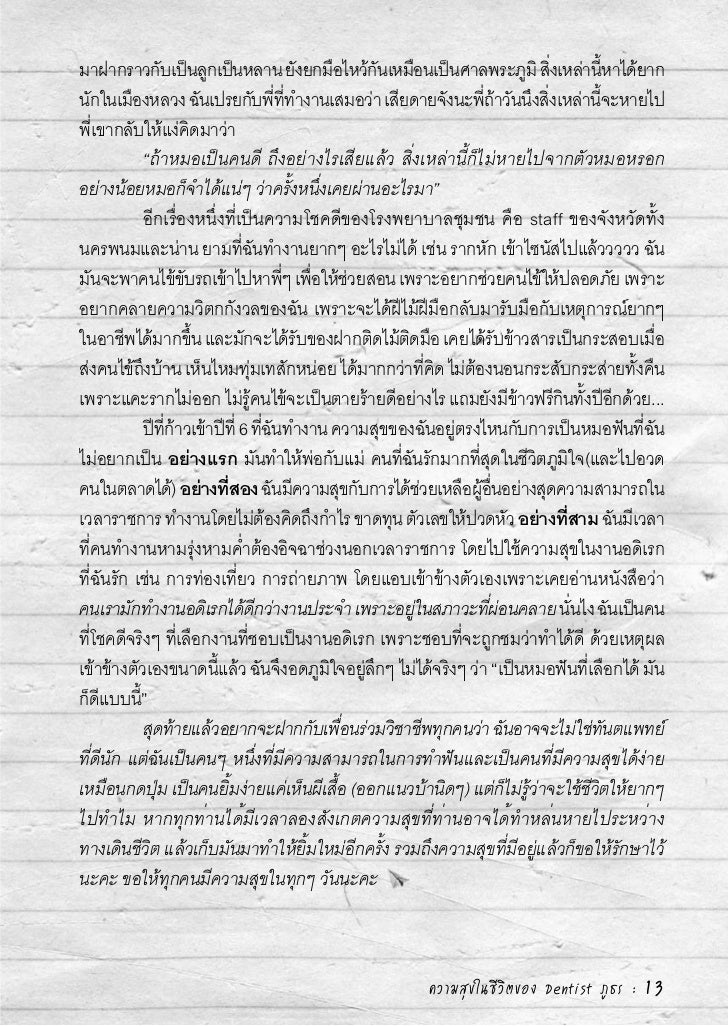 มาฝากราวกับเป็นลูกเป็นหลาน ยังยกมือไหว้กันเหมือนเป็นศาลพระภูมิ สิ่งเหล่านี้หาได้ยาก
นักในเมืองหลวง ฉันเปรยกับพี่ที่ทำงานเสมอว่า เสียดายจังนะพี่ถ้าวันนึงสิ่งเหล่านี้จะหายไป
พี่เขากลับให้แง่คิดมาว่า
“ถ้าหมอเป็นคนดี ถึงอย่างไรเสียแล้ว สิ่งเหล่านี้ก็ไม่หายไปจากตัวหมอหรอก
อย่างน้อยหมอก็จำได้แน่ๆ ว่าครั้งหนึ่งเคยผ่านอะไรมา”
อีกเรื่องหนึ่งที่เป็นความโชคดีของโรงพยาบาลชุมชน คือ staff ของจังหวัดทั้ง
นครพนมและน่าน ยามที่ฉันทำงานยากๆ อะไรไม่ได้ เช่น รากหัก เข้าไซนัสไปแล้ววววว ฉัน
มันจะพาคนไข้ขับรถเข้าไปหาพี่ๆ เพื่อให้ช่วยสอน เพราะอยากช่วยคนไข้ให้ปลอดภัย เพราะ
อยากคลายความวิตกกังวลของฉัน เพราะจะได้ฝีไม้ฝีมือกลับมารับมือกับเหตุการณ์ยากๆ
ในอาชีพได้มากขึ้น และมักจะได้รับของฝากติดไม้ติดมือ เคยได้รับข้าวสารเป็นกระสอบเมื่อ
ส่งคนไข้ถึงบ้าน เห็นไหมทุ่มเทสักหน่อย ได้มากกว่าที่คิด ไม่ต้องนอนกระสับกระส่ายทั้งคืน
เพราะแคะรากไม่ออก ไม่รู้คนไข้จะเป็นตายร้ายดีอย่างไร แถมยังมีข้าวฟรีกินทั้งปีอีกด้วย...
ปีที่ก้าวเข้าปีที่ 6 ที่ฉันทำงาน ความสุขของฉันอยู่ตรงไหนกับการเป็นหมอฟันที่ฉัน
ไม่อยากเป็น อย่างแรก มันทำให้พ่อกับแม่ คนที่ฉันรักมากที่สุดในชีวิตภูมิใจ(และไปอวด
คนในตลาดได้) อย่างที่สอง ฉันมีความสุขกับการได้ช่วยเหลือผู้อื่นอย่างสุดความสามารถใน
เวลาราชการ ทำงานโดยไม่ต้องคิดถึงกำไร ขาดทุน ตัวเลขให้ปวดหัว อย่างที่สาม ฉันมีเวลา
ที่คนทำงานหามรุ่งหามค่ำต้องอิจฉาช่วงนอกเวลาราชการ โดยไปใช้ความสุขในงานอดิเรก
ที่ฉันรัก เช่น การท่องเที่ยว การถ่ายภาพ โดยแอบเข้าข้างตัวเองเพราะเคยอ่านหนังสือว่า
คนเรามักทำงานอดิเรกได้ดีกว่างานประจำ เพราะอยู่ในสภาวะที่ผ่อนคลาย นั่นไง ฉันเป็นคน
ที่โชคดีจริงๆ ที่เลือกงานที่ชอบเป็นงานอดิเรก เพราะชอบที่จะถูกชมว่าทำได้ดี ด้วยเหตุผล
เข้าข้างตัวเองขนาดนี้แล้ว ฉันจึงอดภูมิใจอยู่ลึกๆ ไม่ได้จริงๆ ว่า “เป็นหมอฟันที่เลือกได้ มัน
ก็ดีแบบนี้”
สุดท้ายแล้วอยากจะฝากกับเพื่อนร่วมวิชาชีพทุกคนว่า ฉันอาจจะไม่ใช่ทันตแพทย์
ที่ดีนัก แต่ฉันเป็นคนๆ หนึ่งที่มีความสามารถในการทำฟันและเป็นคนที่มีความสุขได้ง่าย
เหมือนกดปุ่ม เป็นคนยิ้มง่ายแค่เห็นผีเสื้อ (ออกแนวบ้านิดๆ) แต่ก็ไม่รู้ว่าจะใช้ชีวิตให้ยากๆ
ไปทำไม หากทุกท่านได้มีเวลาลองสังเกตความสุขที่ท่านอาจได้ทำหล่นหายไประหว่าง
ทางเดินชีวิต แล้วเก็บมันมาทำให้ยิ้มใหม่อีกครั้ง รวมถึงความสุขที่มีอยู่แล้วก็ขอให้รักษาไว้
นะคะ ขอให้ทุกคนมีความสุขในทุกๆ วันนะคะ
ความสุขในชีวิตของ Dentist ภูธร : 13